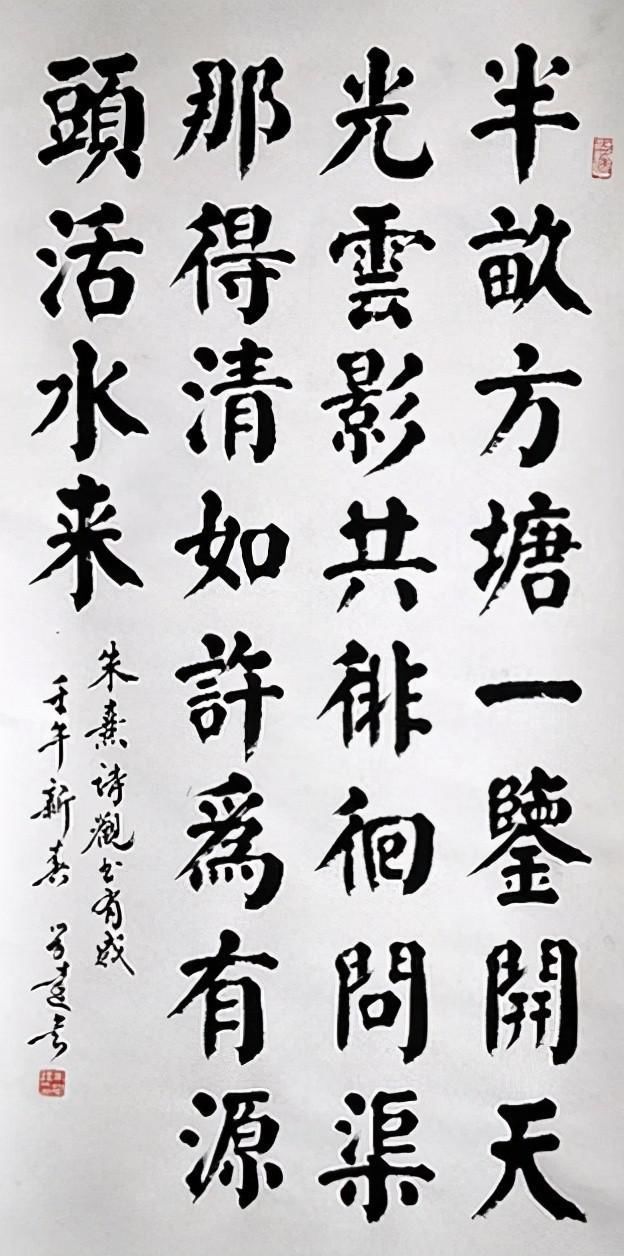 半畝方塘一鑒開天
光雲影共徘徊問渠
那得清如許爲有源
頭活水来
朱熹詩觀书有感
壬午新春